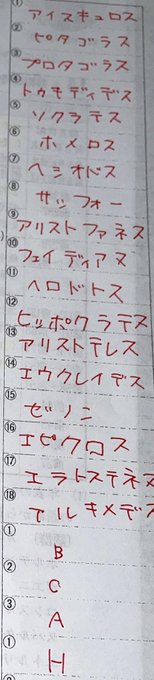 ①
アイスキュロス
②
ピタゴラス
③
プロタゴラス
④
トゥキディデス
⑤
ソクラテス
⑥
ホメロス
⑦
ヘシオドス
⑧
サッフォー
⑨
アリストファネス
⑩
フェイディアス
⑪
ヘロドトス
⑫
ヒッポクラテス
⑬
アリストテレス
⑭
エウクレイデス
⑮
ゼノン
⑯
エピクロス
⑰
エラトステネス
⑱
アルキメデス
①
B
②
C
③
A
①
H